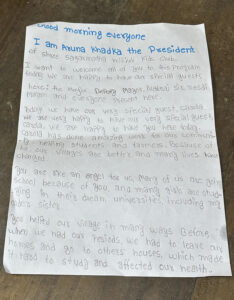 Good morning everyone
I am Aruna Khadka the President
of Shree Kids Club.
I want to welcome all of you to this Program
today we are happy to have our special guests
here; the Mayor, Deputy Mayor, sir, madam
and everyone present here.
Today we have our very special guest
we are very happy to have our very special guest
we are happy to have you here today
has done amazing work for our communi
ty helping students and farmers. Because of
villages are better and many lives have
changed.
You are like an angel for us. Many of us are going
school because of you, and many girls are study
ing to their dream universities, including my
sister.
You helped our village in many ways. Before,
when we had our periods, we had to leave our
homes and go to others houses, which made
it hard to study and affected our health.